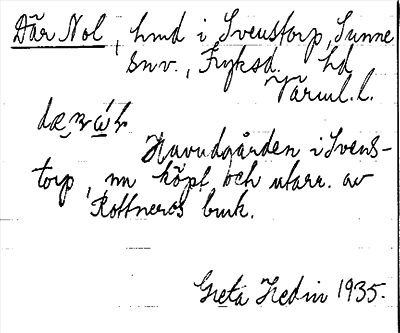 Där Nol, hmd i Svenstorp, Sunne
snv., Fryksd. hd
Värml. l.
Huvudgården i Svens-
torp, nu köpt och utarr. av
Rottneros bruk.
Greta Hedin 1935.